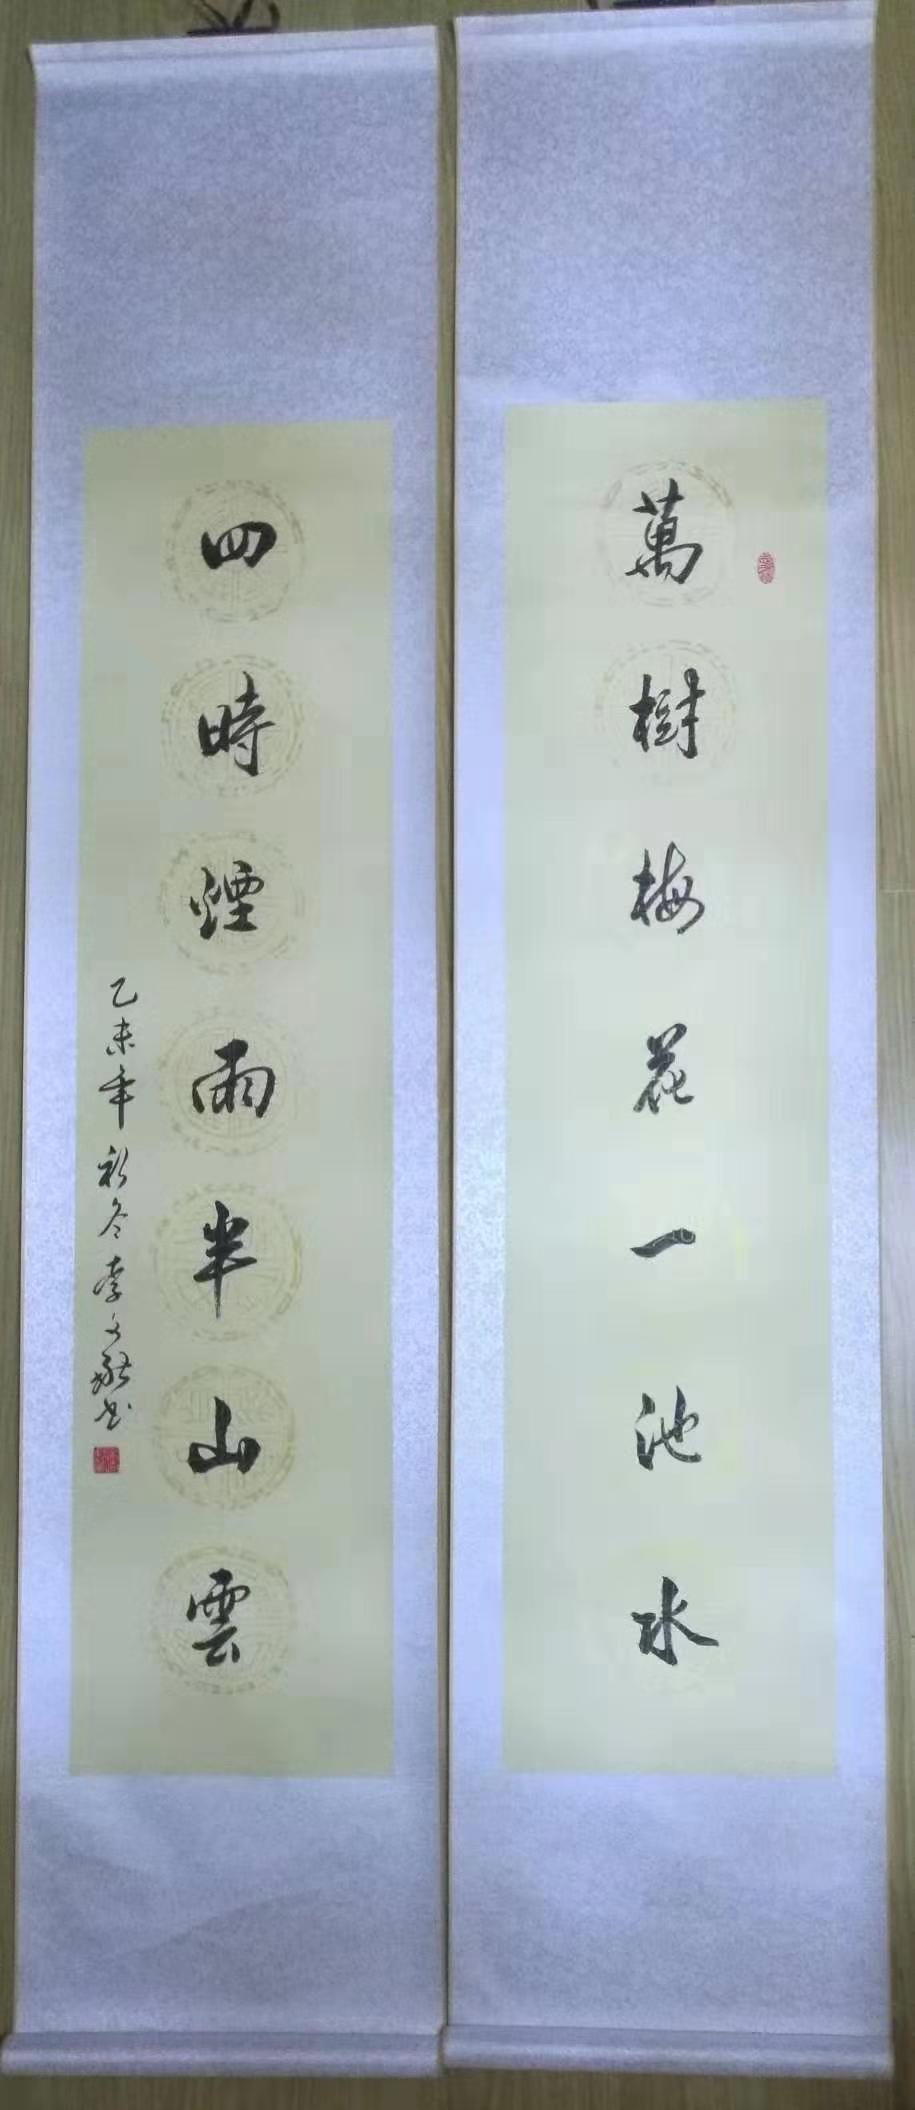 萬樹梅花一池水
四時煙雨半山雲
乙未年初冬李文啟书